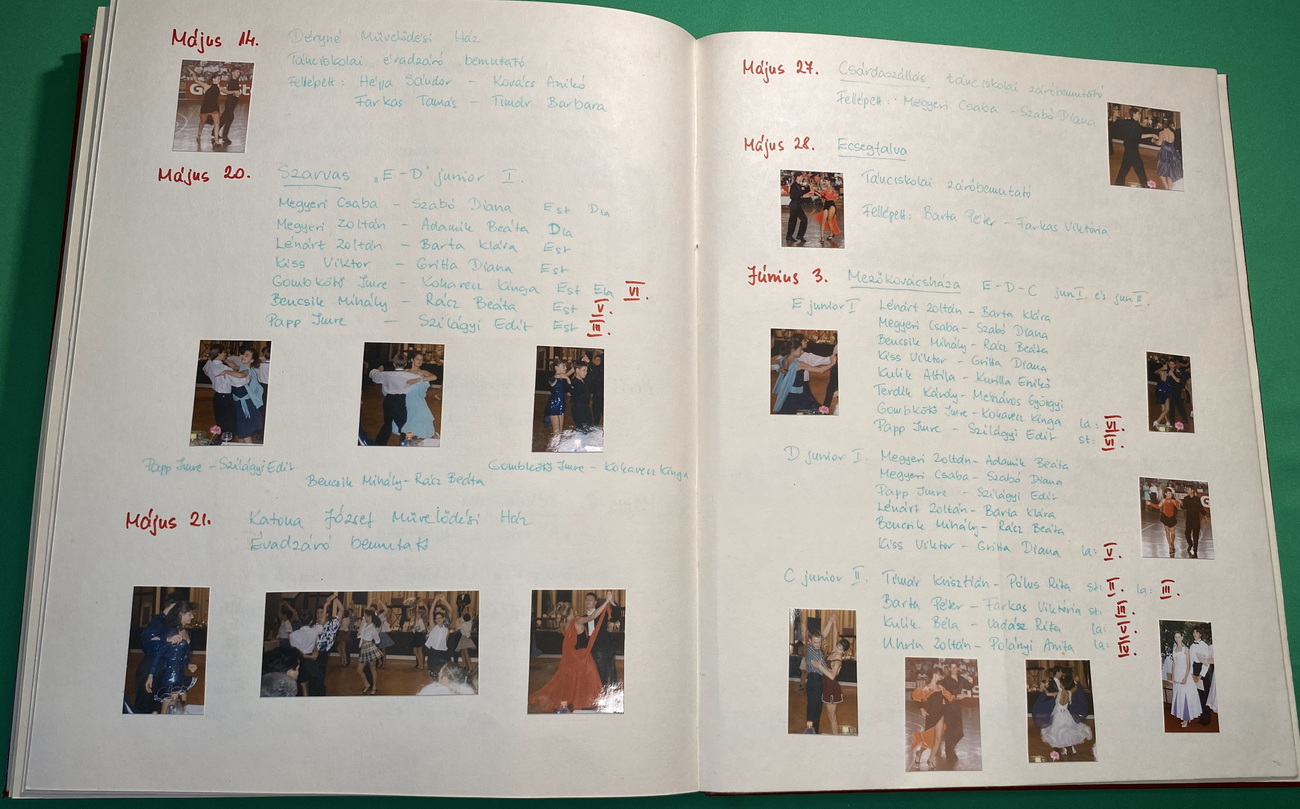 Május 14. Déryné Művelődési Ház
Tánciskolai évadzáró bemutató
Fellépett: Héjja Sándor - Kovács Anikó
Farkas Tamás - Timár Barbara
Május 20. Szarvas „E-D" junior I.
Megyeri Csaba - Szabó Diana Est Dla
Megyeri Zoltán - Adamik Beáta Dla
Lénárt Zoltán - Barta Klára Est
Kiss Viktor - Gritta Diana Est
Gombkötő Imre - Kokavecz Kinga Est Ela VI.
Bencsik Mihály - Rácz Beáta Est V.
Papp Imre - Szilágyi Edit Est III.
Papp Imre - Szilágyi Edit
Bencsik Mihály - Rácz Beáta
Gombkötő Imre - Kokavecz Kinga
Május 21. Katona József Művelődési Ház
Évadzáró bemutató
Május 27. Csárdaszállás tánciskolai záróbemutató
Fellépett: Megyeri Csaba - Szabó Diana
Május 28. Ecsegfalva
Tánciskolai záróbemutató
Fellépett: Barta Péter - Farkas Viktória
Június 3. Mezőkovácsháza E-D-C jun I. és jun II.
E junior I Lénárt Zoltán - Barta Klára
Megyeri Csaba - Szabó Diana
Bencsik Mihály - Rácz Beáta
Kiss Viktor - Gritta Diana
Kulik Attila - Kurilla Enikő
Terdik Károly - Mészáros Györgyi
Gombkötő Imre - Kokavecz Kinga la:
Papp Imre - Szilágyi Edit st:
D junior I. Megyeri Zoltán - Adamik Beáta
Megyeri Csaba - Szabó Diana
Papp Imre - Szilágyi Edit
Lénárt Zoltán - Barta Klára
Bencsik Mihály - Rácz Beáta
Kiss Viktor - Gritta Diana la: V.
C junior II. Timár Krisztián - Pólus Rita st: II. la: III.
Barta Péter - Farkas Viktória st: III.
Kulik Béla - Vadász Rita la: V.
Uhrin Zoltán - Polányi Anita la: